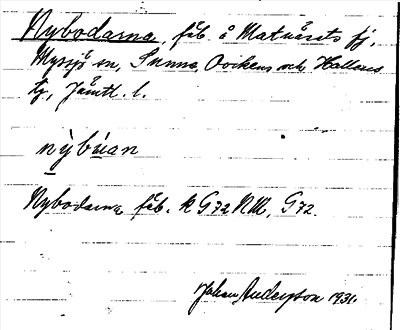 Nybodarna, fäb. å Matnäsets fj,
Myssjö sn, Sunne, Oviken och Hallens
tg, Jämtl. l.
nỳbúan
Nybodarna fäb. k G72 NM, G72.
Johan Anderzson 1931.